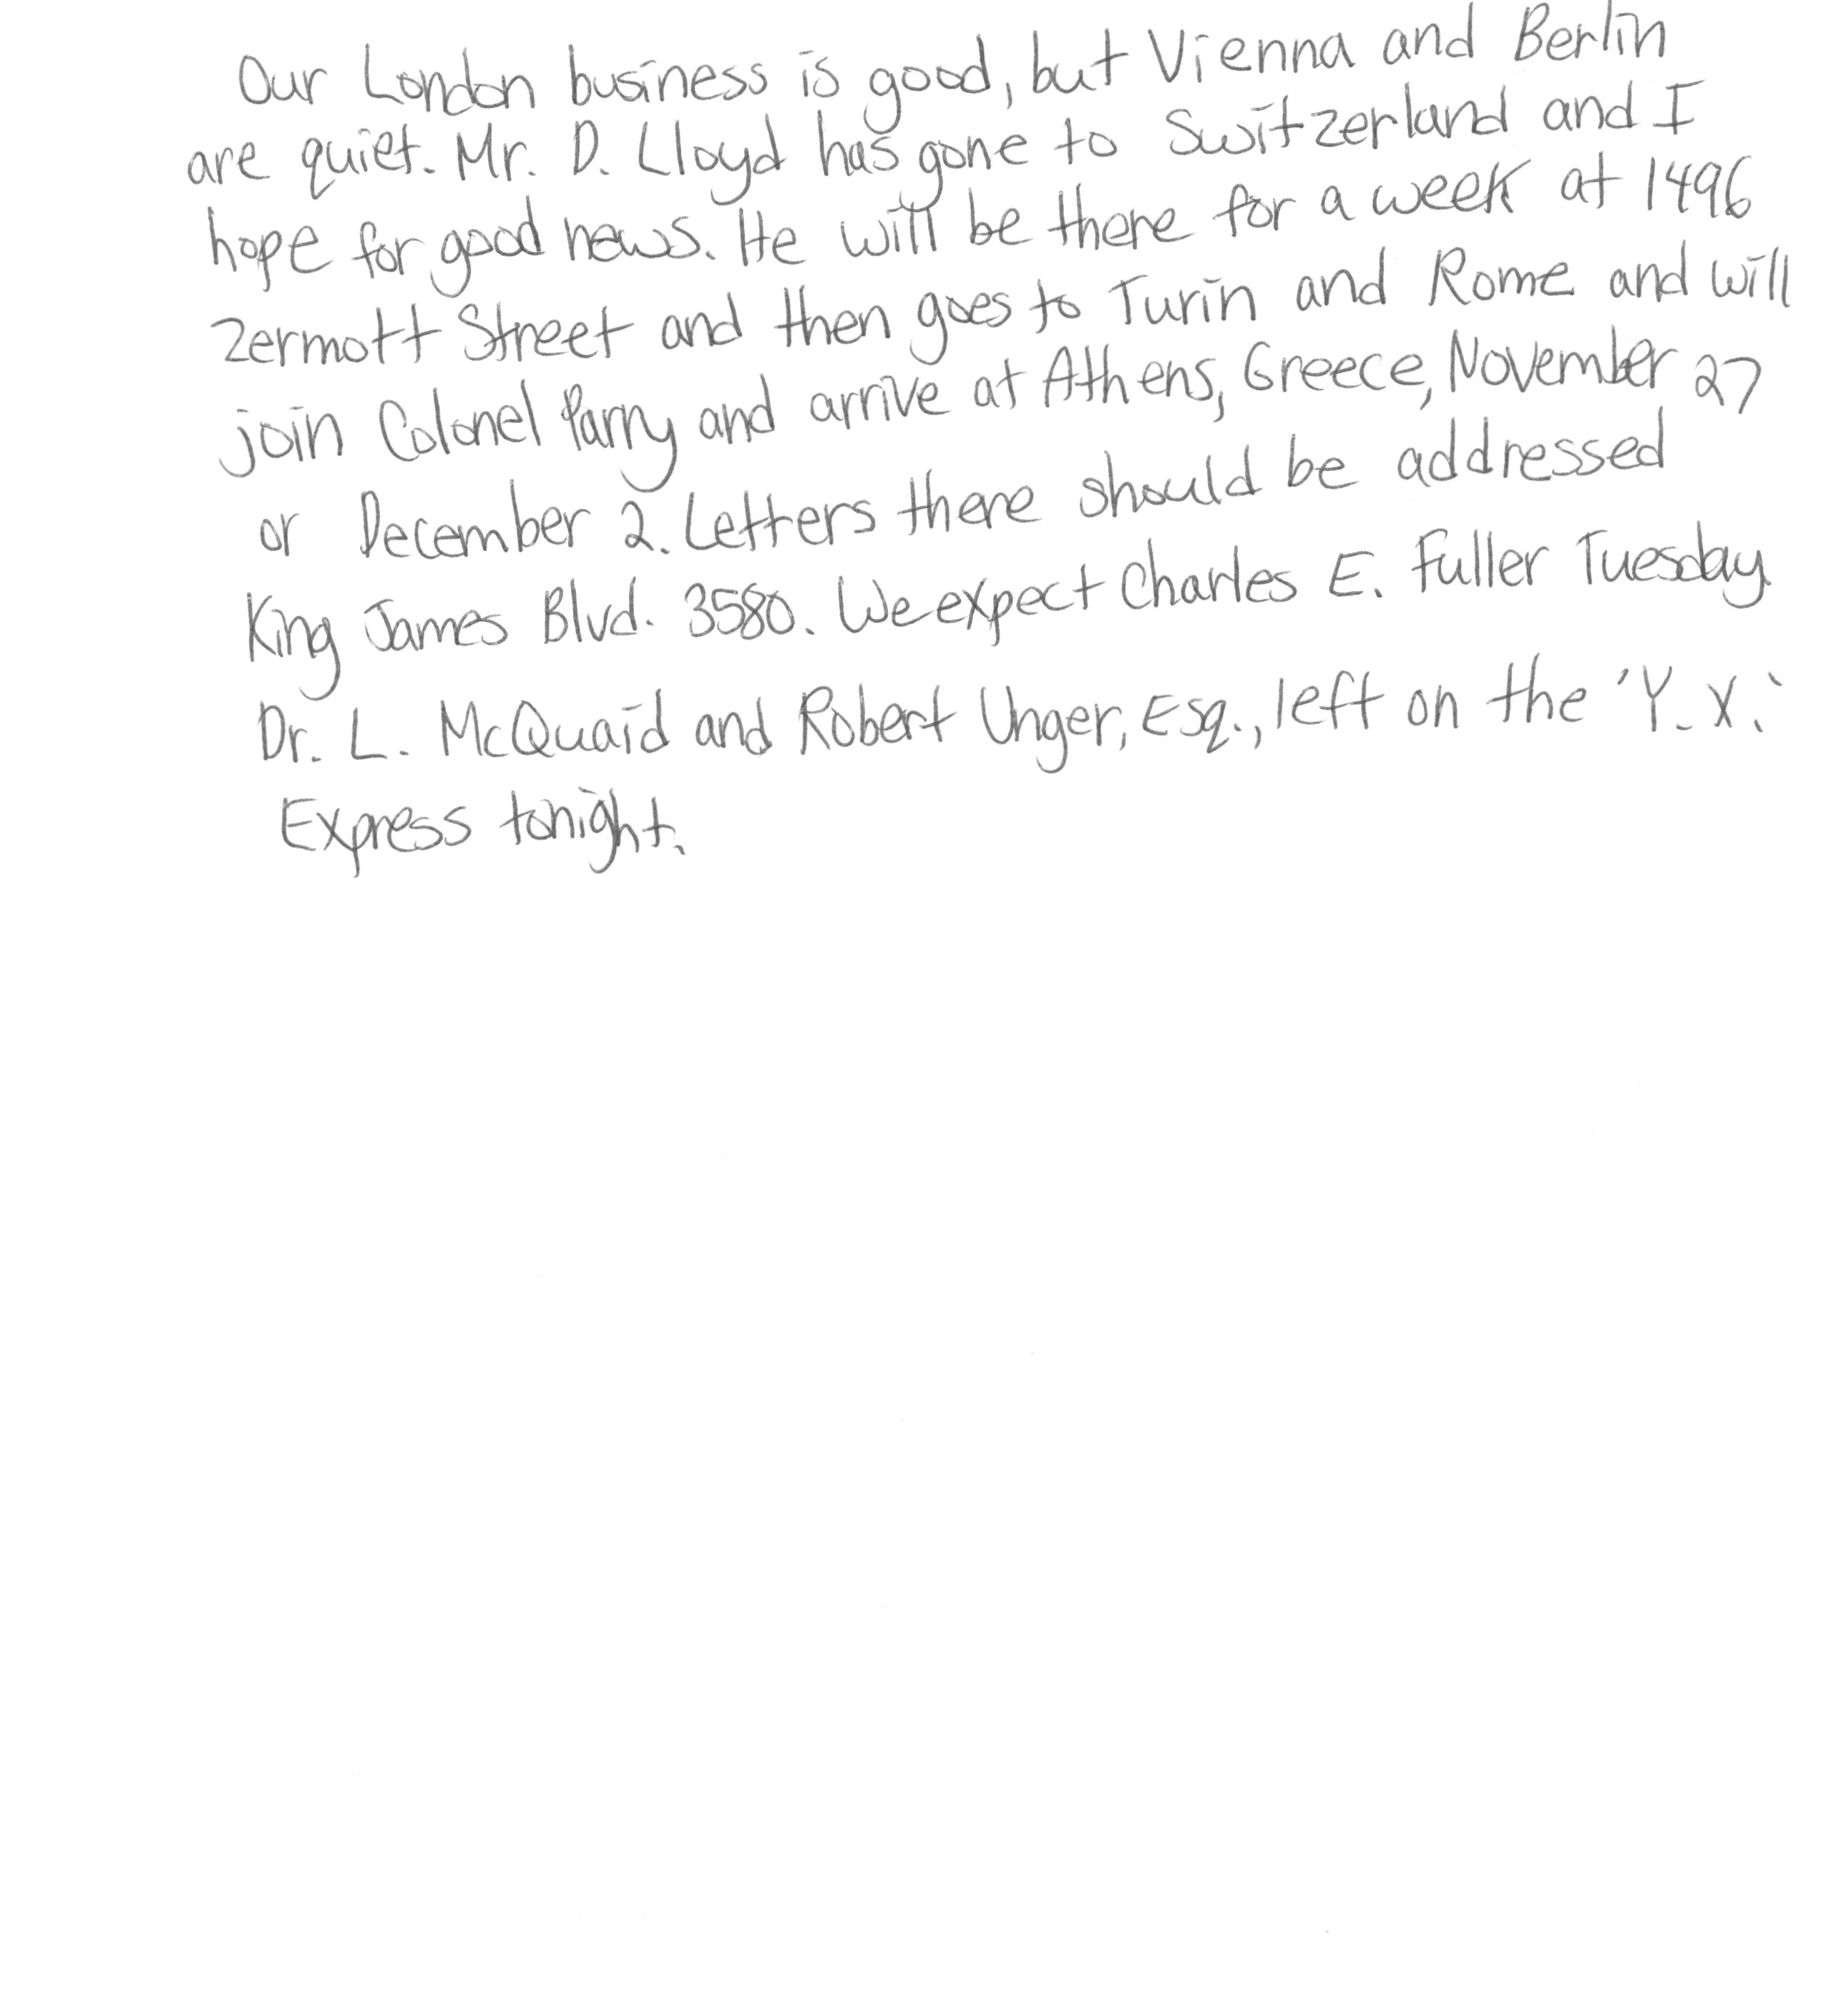 Our London business is good, but Vienna and Berlin
are quiet. Mr. D. Lloyd has gone to Switzerland and I
hope for good news. He will be there for a week at 1496
Zermott Street and then goes to Turin and Rome and will
join Colonel Parry and arrive at Athens, Greece, November 27
or December 2. Letters there should be addressed
King James Blvd. 3580. We expect Charles E. Fuller Tuesday
Dr. L. McQuaid and Robert Unger, Esq., left on the 'Y. X.'
Express tonight.